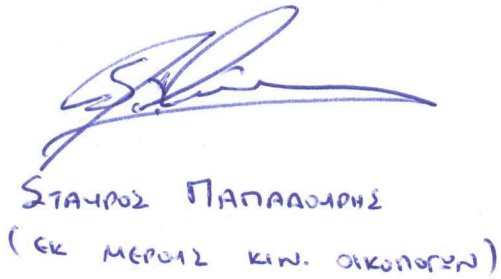 ΣΤΑΥΡΟΣ ΠΑΠΑΔΟΥΡΗΣ
(ΕΚ ΜΕΡΟΥΣ ΚΙΝ. ΟΙΚΟΛΟΓΩΝ)